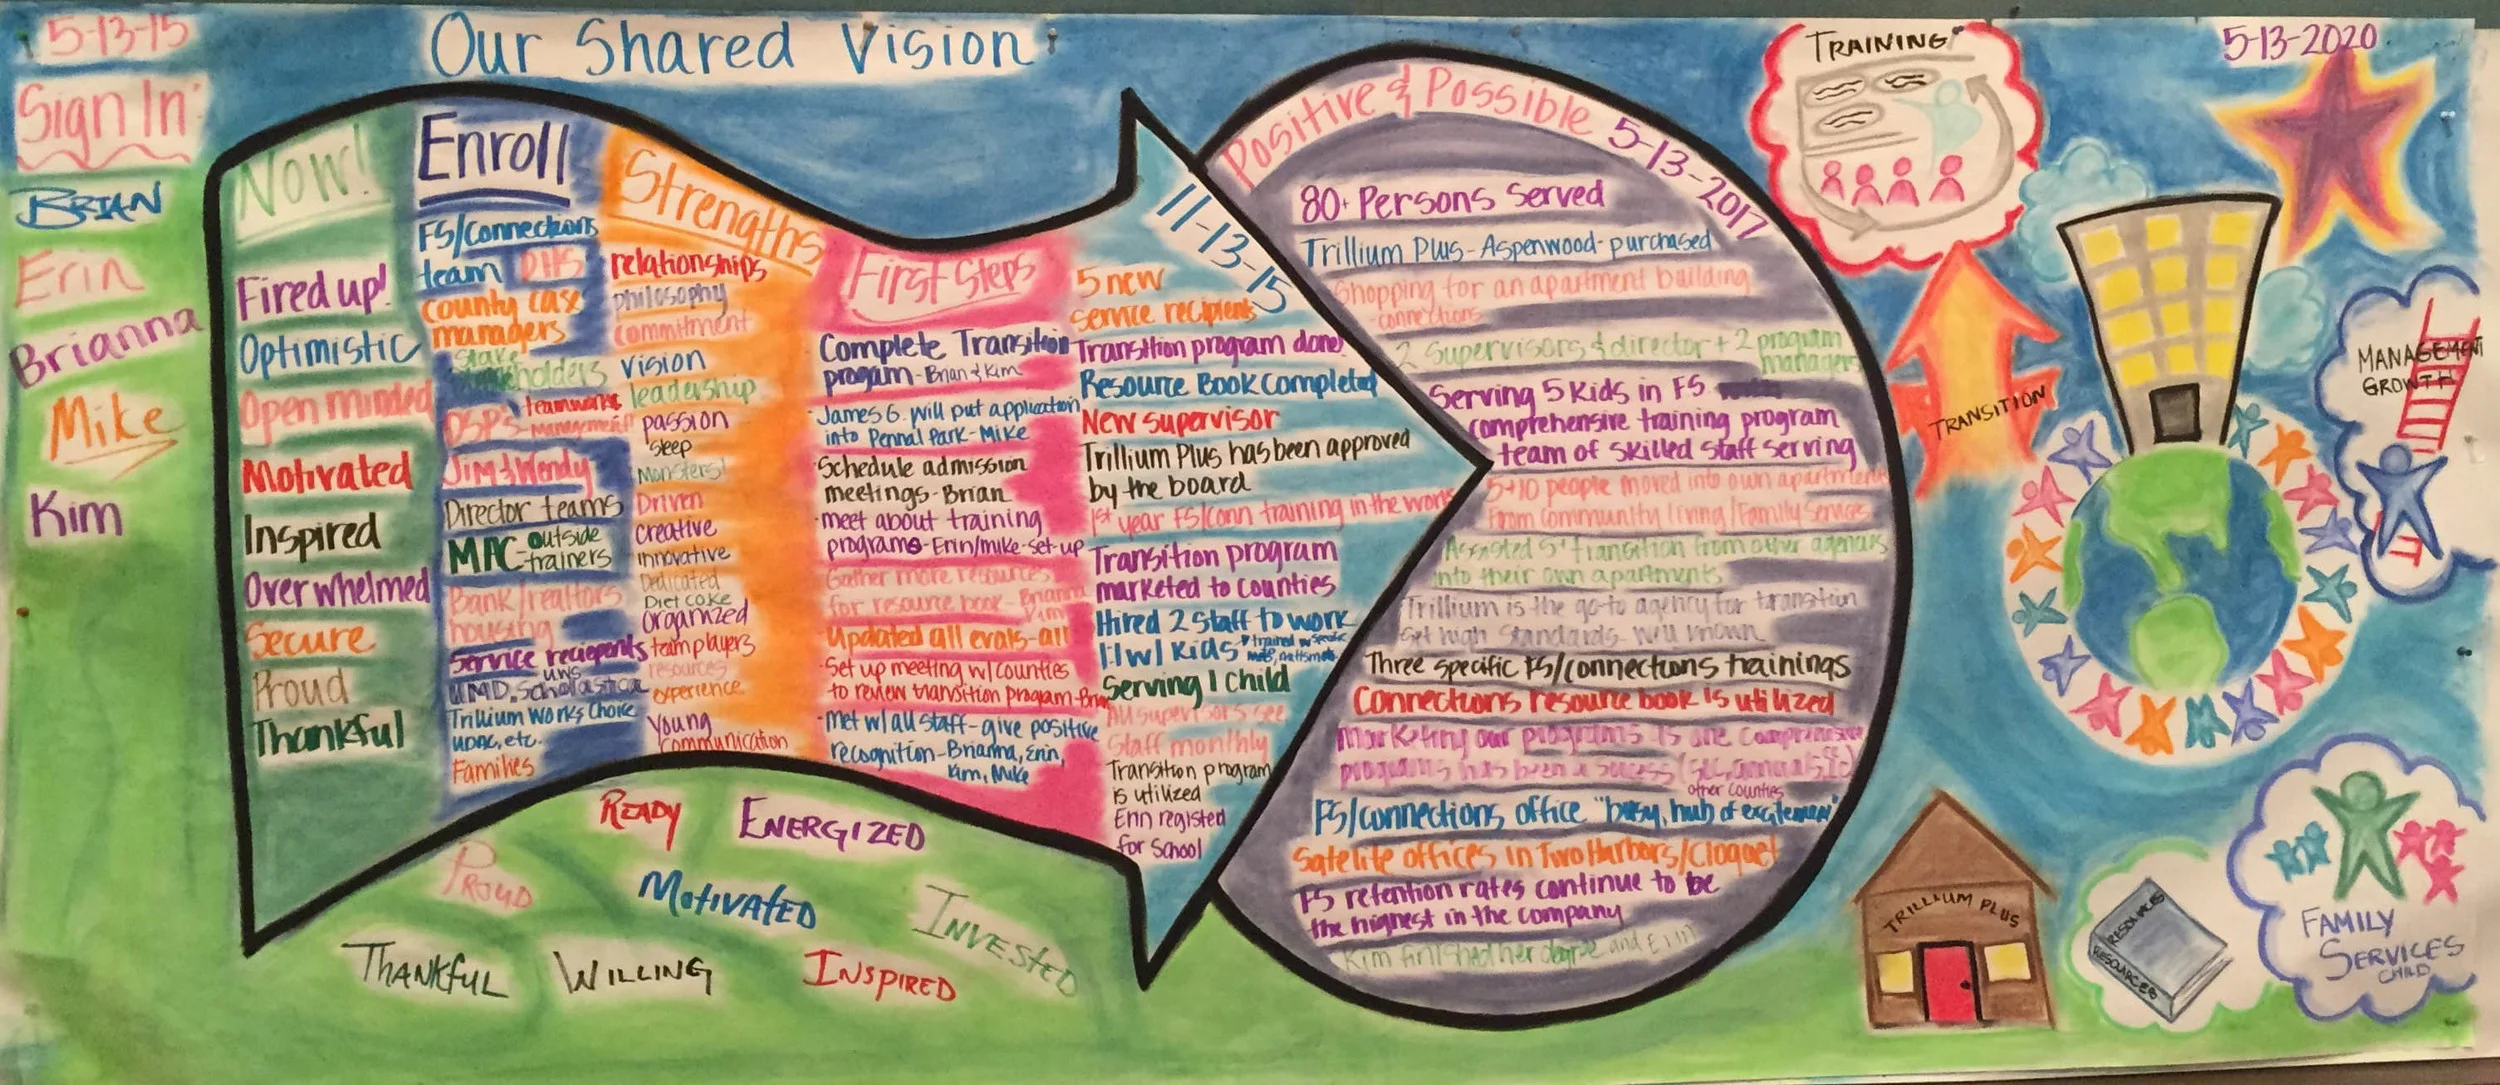 5-13-15
Our Shared Vision
5-13-2020
Sign In
BRIAN
Erin
Brianna
Mike
Kim
Now!
Fired up!
Optimistic
Open minded
Motivated
Inspired
Overwhelmed
Secure
Proud
Thankful
Enroll
FS/Connections
team DHS
county case
managers
Stake
holders
DSP's teamwork
management
Jim & Wendy
Director teams
MAC outside
trainers
Bank/realtors
housing
Service reciepents
UWS
UMD, Scholastica
Trillium Works Choice
UDAC, etc.
Families
Strengths
relationships
philosophy
commitment
vision
leadership
passion
sleep
Monsters!
Driven
creative
innovative
Dedicated
Diet coke
Organized
team players
resources
experience
Young
communication
First Steps
Complete Transition
program - Brian & Kim
James G. will put application
into Pennal Park - Mike
Schedule admission
meetings - Brian
meet about training
programs - Erin/Mike - set-up
Gather more resources
for resource book - Brianna
Kim
Updated all evals - all
Set up meeting w/counties
to review transition program - Brian
Met w/all staff - give positive
recognition - Brianna, Erin,
Kim, Mike
11-13-15
5 new
service recipients
Transition program done!
Resource Book Completed
New supervisor
Trillium Plus has been approved
by the board
1st year FS/conn training in the work
Transition program
marketed to counties
Hired 2 staff to work
1:1 w/ kids trained w/ specific
Serving 1 child
All supervisors see
Staff monthly
Transition program
is utilized
Erin registed
for School
Positive & Possible 5-13-2017
80+ Persons Served
Trillium Plus - Aspenwood - purchased
Shopping for an apartment building
- connections
2 Supervisors & director + 2 program
managers
Serving 5 kids in FS
comprehensive training program
team of skilled staff serving
5+10 people moved into own apartments
From Community living/Family Services
Assisted 5+ transition from other agencies
into their own apartments
Trillium is the go-to agency for transition
Set high standards - well known
Three specific FS/connections trainings
Connections resource book is utilized
Marketing our programs is one comprehensive
programs has been a success
other counties
FS/connections office "busy, hub of excitement"
Satelite offices in Two Harbors/Cloquet
FS retention rates continue to be
the highest in the company
Kim finished her degree and Erin
READY
ENERGIZED
PROUD
MOTIVATED
INVESTED
THANKFUL
WILLING
INSPIRED
TRAINING
TRANSITION
MANAGEMENT
GROWTH
TRILLIUM PLUS
RESOURCES
RESOURCES
FAMILY
SERVICES
CHILD